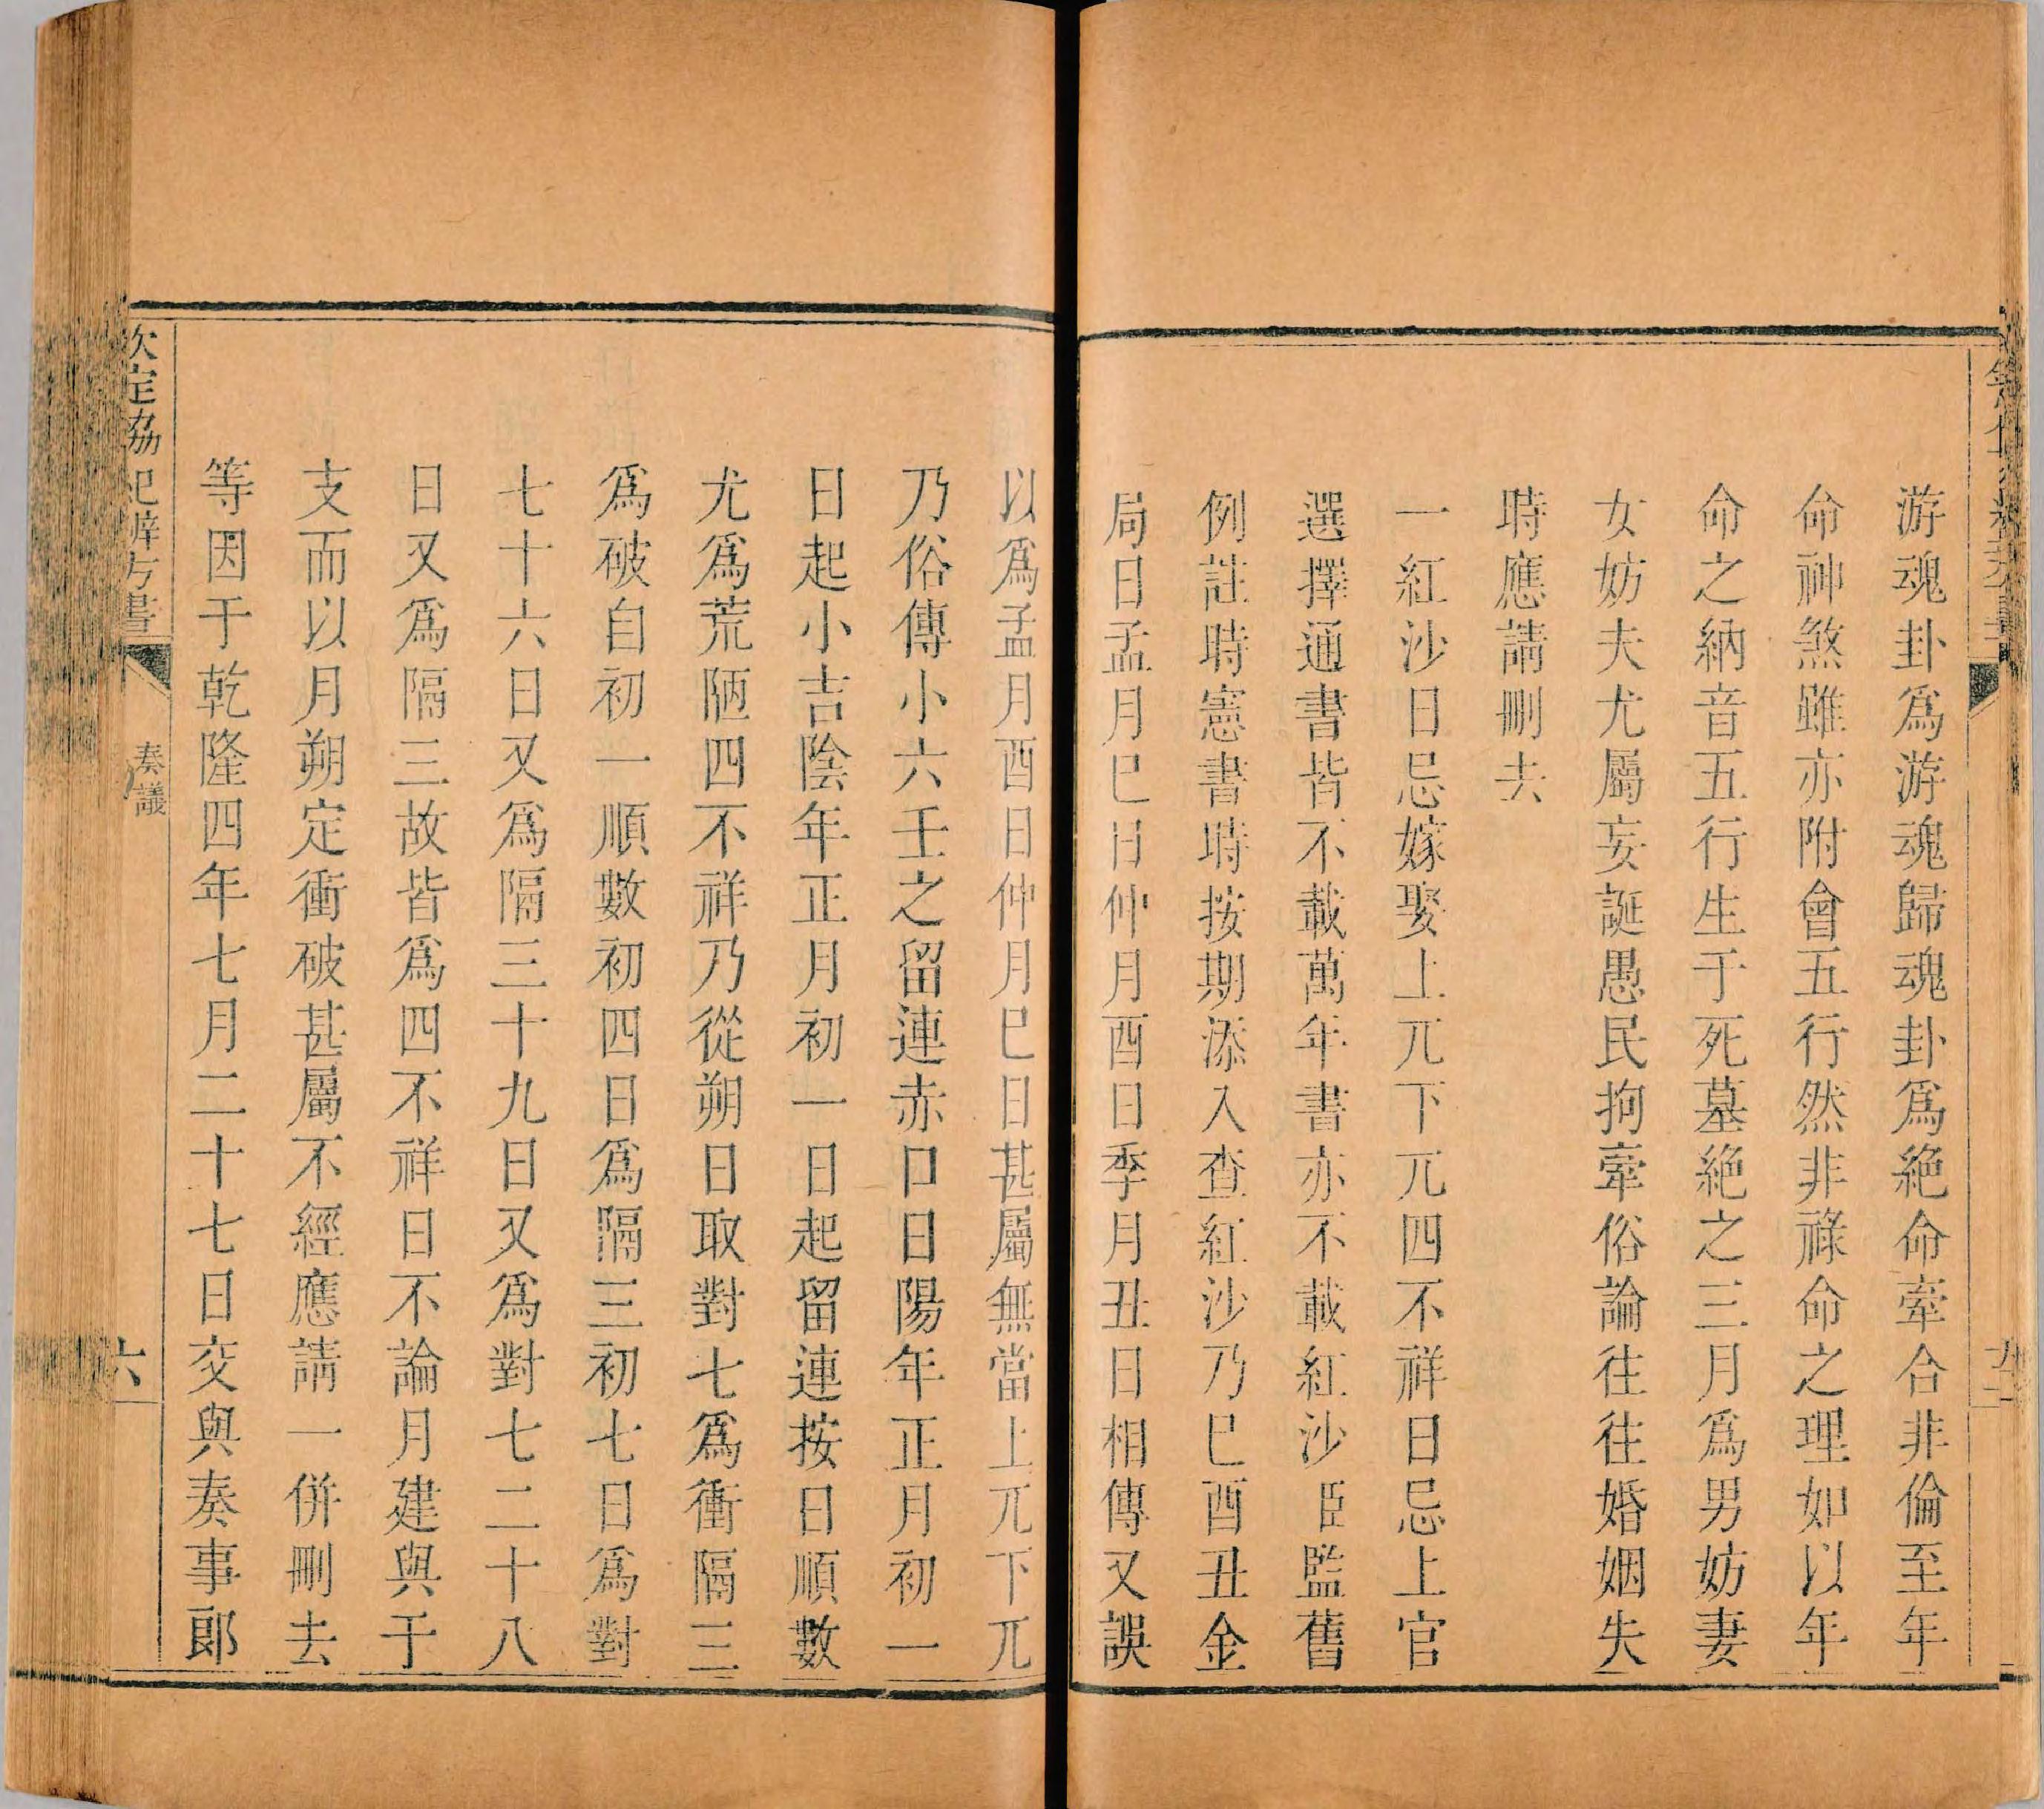 游魂卦爲游魂歸魂卦爲絶命牽合非倫至年
命神煞雖亦附會五行然非祿命之理如以年
命之納音五行生于死墓絶之三月爲男妨妻
女妨夫尤屬妄誕愚民拘牽俗論往往婚姻失
時應請刪去
一紅沙日忌嫁娶上兀下兀四不祥日忌上官
選擇通書皆不載萬年書亦不載紅沙臣監舊
例註時憲書時按期添入查紅沙乃巳酉丑金
局日孟月巳日仲月酉日季月丑日相傳又誤
以爲孟月酉日仲月巳日甚屬無當上兀下兀
乃俗傳小六壬之留連赤口日陽年正月初一
日起小吉陰年正月初一日起留連按日順數
尤爲荒陋四不祥乃從朔日取對七爲衝隔三
爲破自初一順數初四日爲隔三初七日爲對
七十六日又爲隔三十九日又爲對七二十八
日又爲隔三故皆爲四不祥日不論月建與干
支而以月朔定衝破甚屬不經應請一併刪去
等因于乾隆四年七月二十七日交與奏事郎
欽定協紀辨方書
奏議
六